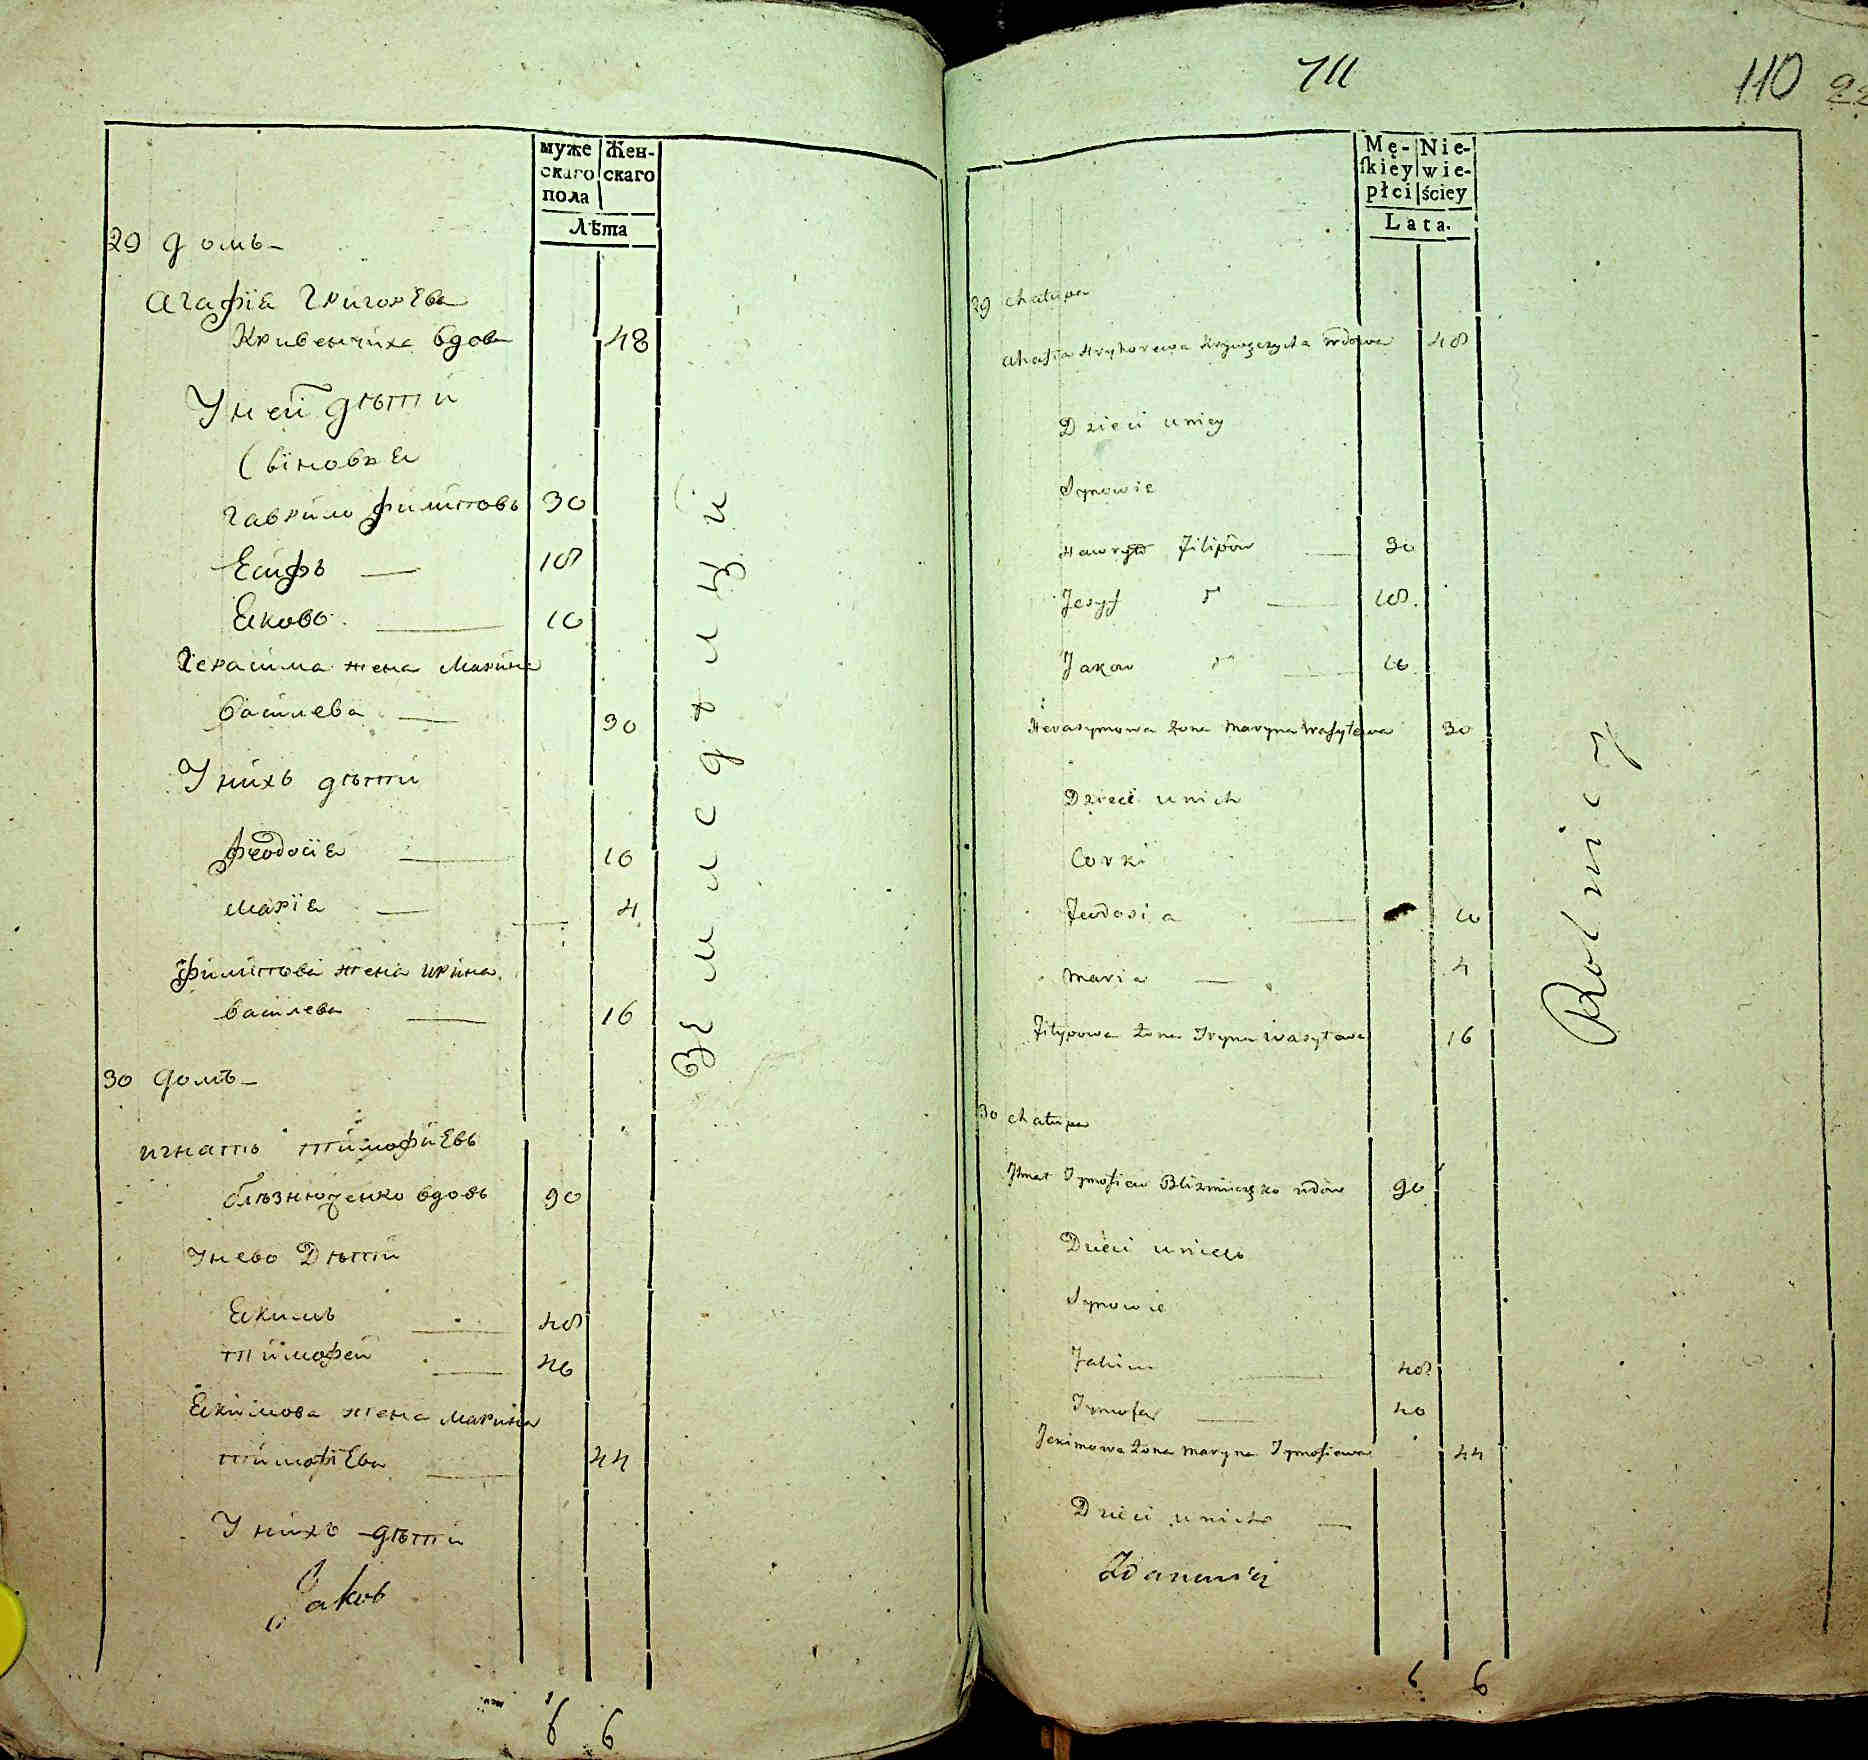 муже
скаго
пола
Жен-
скаго
Лѣта
29 домъ
агафїя Григорієва
Кривенчиха вдова 48
У ней дѣти
Сїновя
гаврило филиповъ 30
Есифъ — 18
Яковъ — 10
Херасима жена Марина
василева — 30
У нихъ дѣти
феодосїя — 10
Марїя — 4
филипова жена ирина
василева — 16
30 домъ
игнатъ тимофиевъ
близнюченко вдовъ 90
У нево Дѣти
Якимъ — 48
тимофей — 40
Якимова жена Марина
тимофїева — 44
У нихъ дѣти
Яковъ
6 6
Земледѣлцы
711
110
Mę-
ſkiey
płci
Nie-
wie-
ściey
Lata.
29 chałupa
Ahafia Hryhorewa Krywęczycha wdowa 48
Dzieci u niey
Synowie
Hawryło Filipow — 30
Jesyf — 18.
Jakow — 10
Herasymowa żona Maryna Wasylewa 30
Dzieci u nich
Corki
Feodosia — 10
Maria — 4
Filipowa żona Iryna Wasylewa 16
30 chałupa
Ihnat Tymofiew Blizniuczęko wdow 90
Dzieci u niego
Synowie
Jakim — 48
Tymofey — 40
Jekimowa żona Maryna Tymofiewa 44
Dzieci u nich —
6 6
Rolnicy